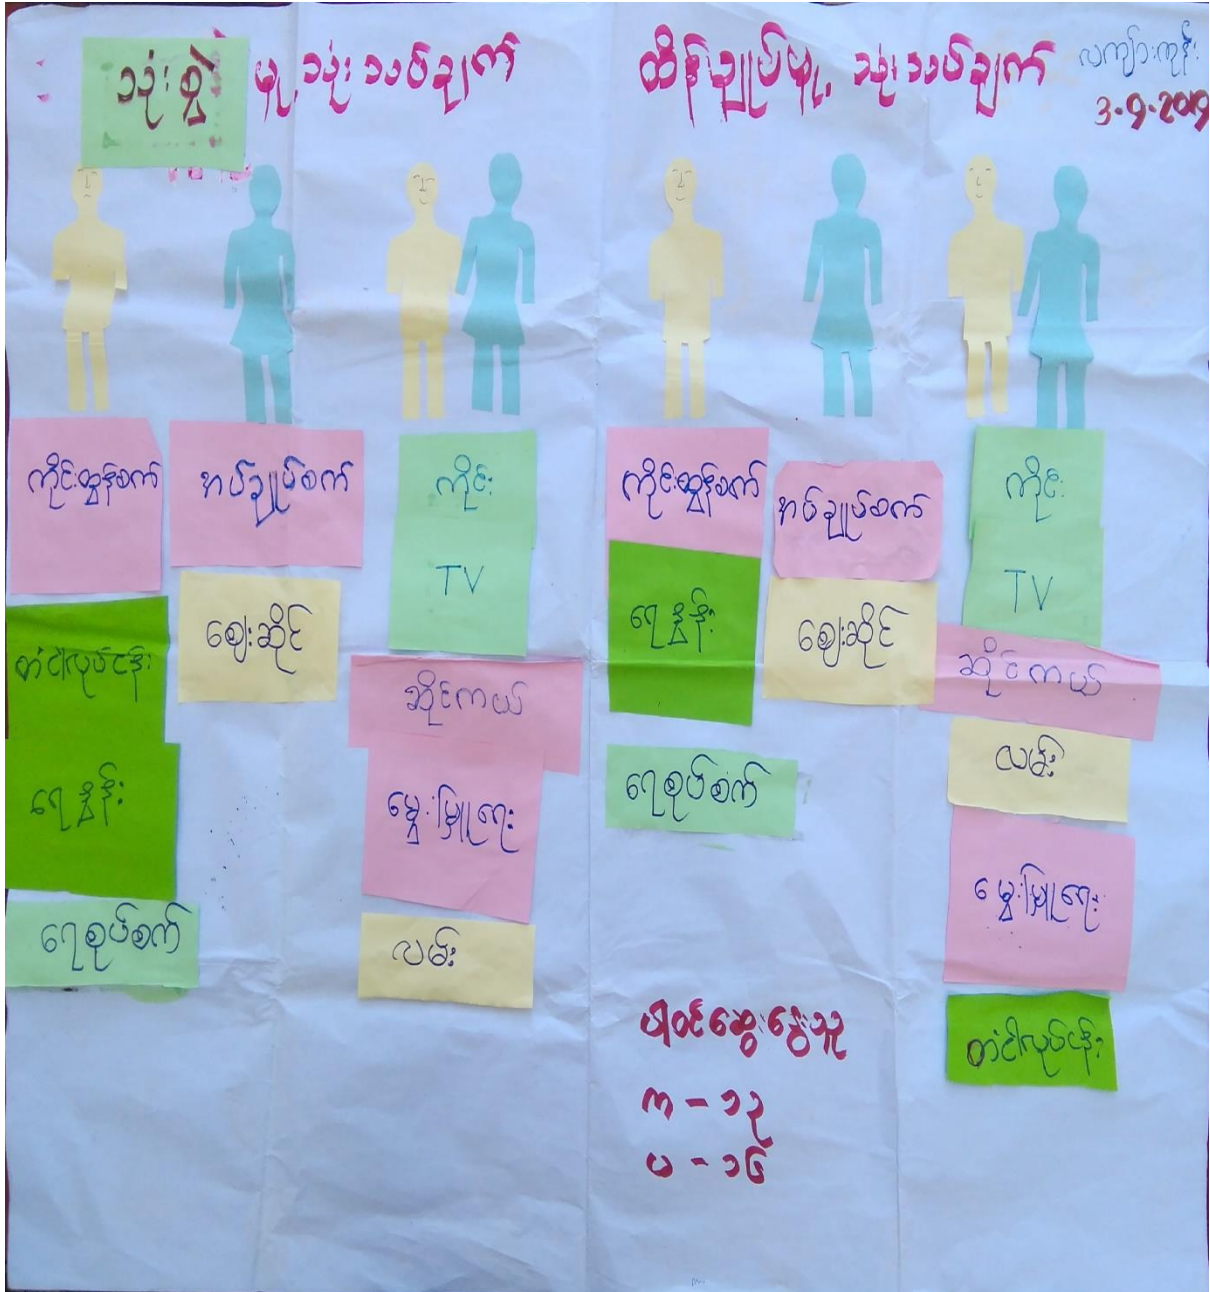 သုံးစွဲ မှု့သုံးသပ်ချက်
ထိန်းချုပ်မှု့ သုံးသပ်ချက်
လကျ်ားကုန်း
3.9.2019
ကိုင်းထွန်စက်
တံငါလုပ်ငန်း
ရေနွန်း
ရေစုပ်စက်
အပ်ချုပ်စက်
ဈေးဆိုင်
ကိုင်း
TV
ဆိုင်ကယ်
မွေးမြူရေး
လမ်း
ကိုင်းထွန်စက်
ရေနွန်း
ရေစုပ်စက်
အပ်ချုပ်စက်
ဈေးဆိုင်
ကိုင်း
TV
ဆိုင်ကယ်
လမ်း
မွေးမြူရေး
တံငါလုပ်ငန်း
ပါဝင်ဆွေးနွေးသူ
က - ၁၃
မ - ၁၆